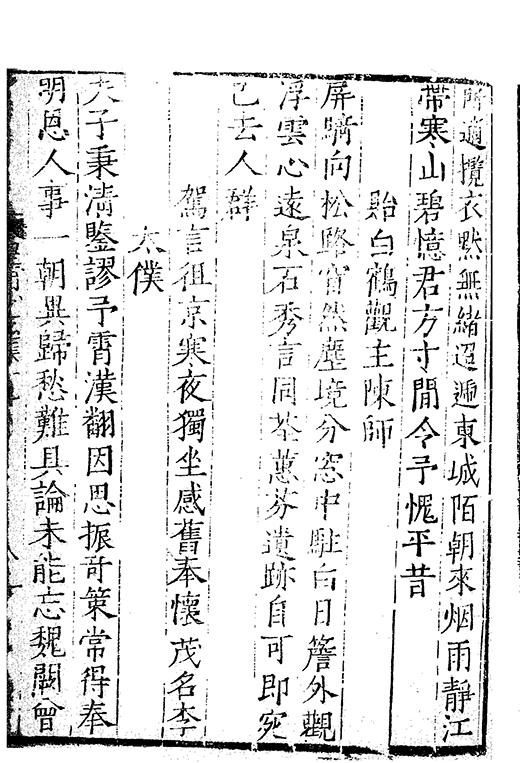 所適攬衣默無緒迢遞東城陌朝來烟雨靜江
帶寒山碧憶君方寸間令予愧平昔
貽白鶴觀主陳師
屏躋向松路窅然塵境分窓中駐白日簷外觀
浮雲心遠泉石秀言同荃蕙芬遺跡自可即宛
已去人群
駕言徂京寒夜獨坐感舊奉懷茂名李
太僕
夫子秉清鑒謬予霄漢翻因思振奇策常得奉
明恩人事一朝異歸愁難具論未能忘魏闕曾